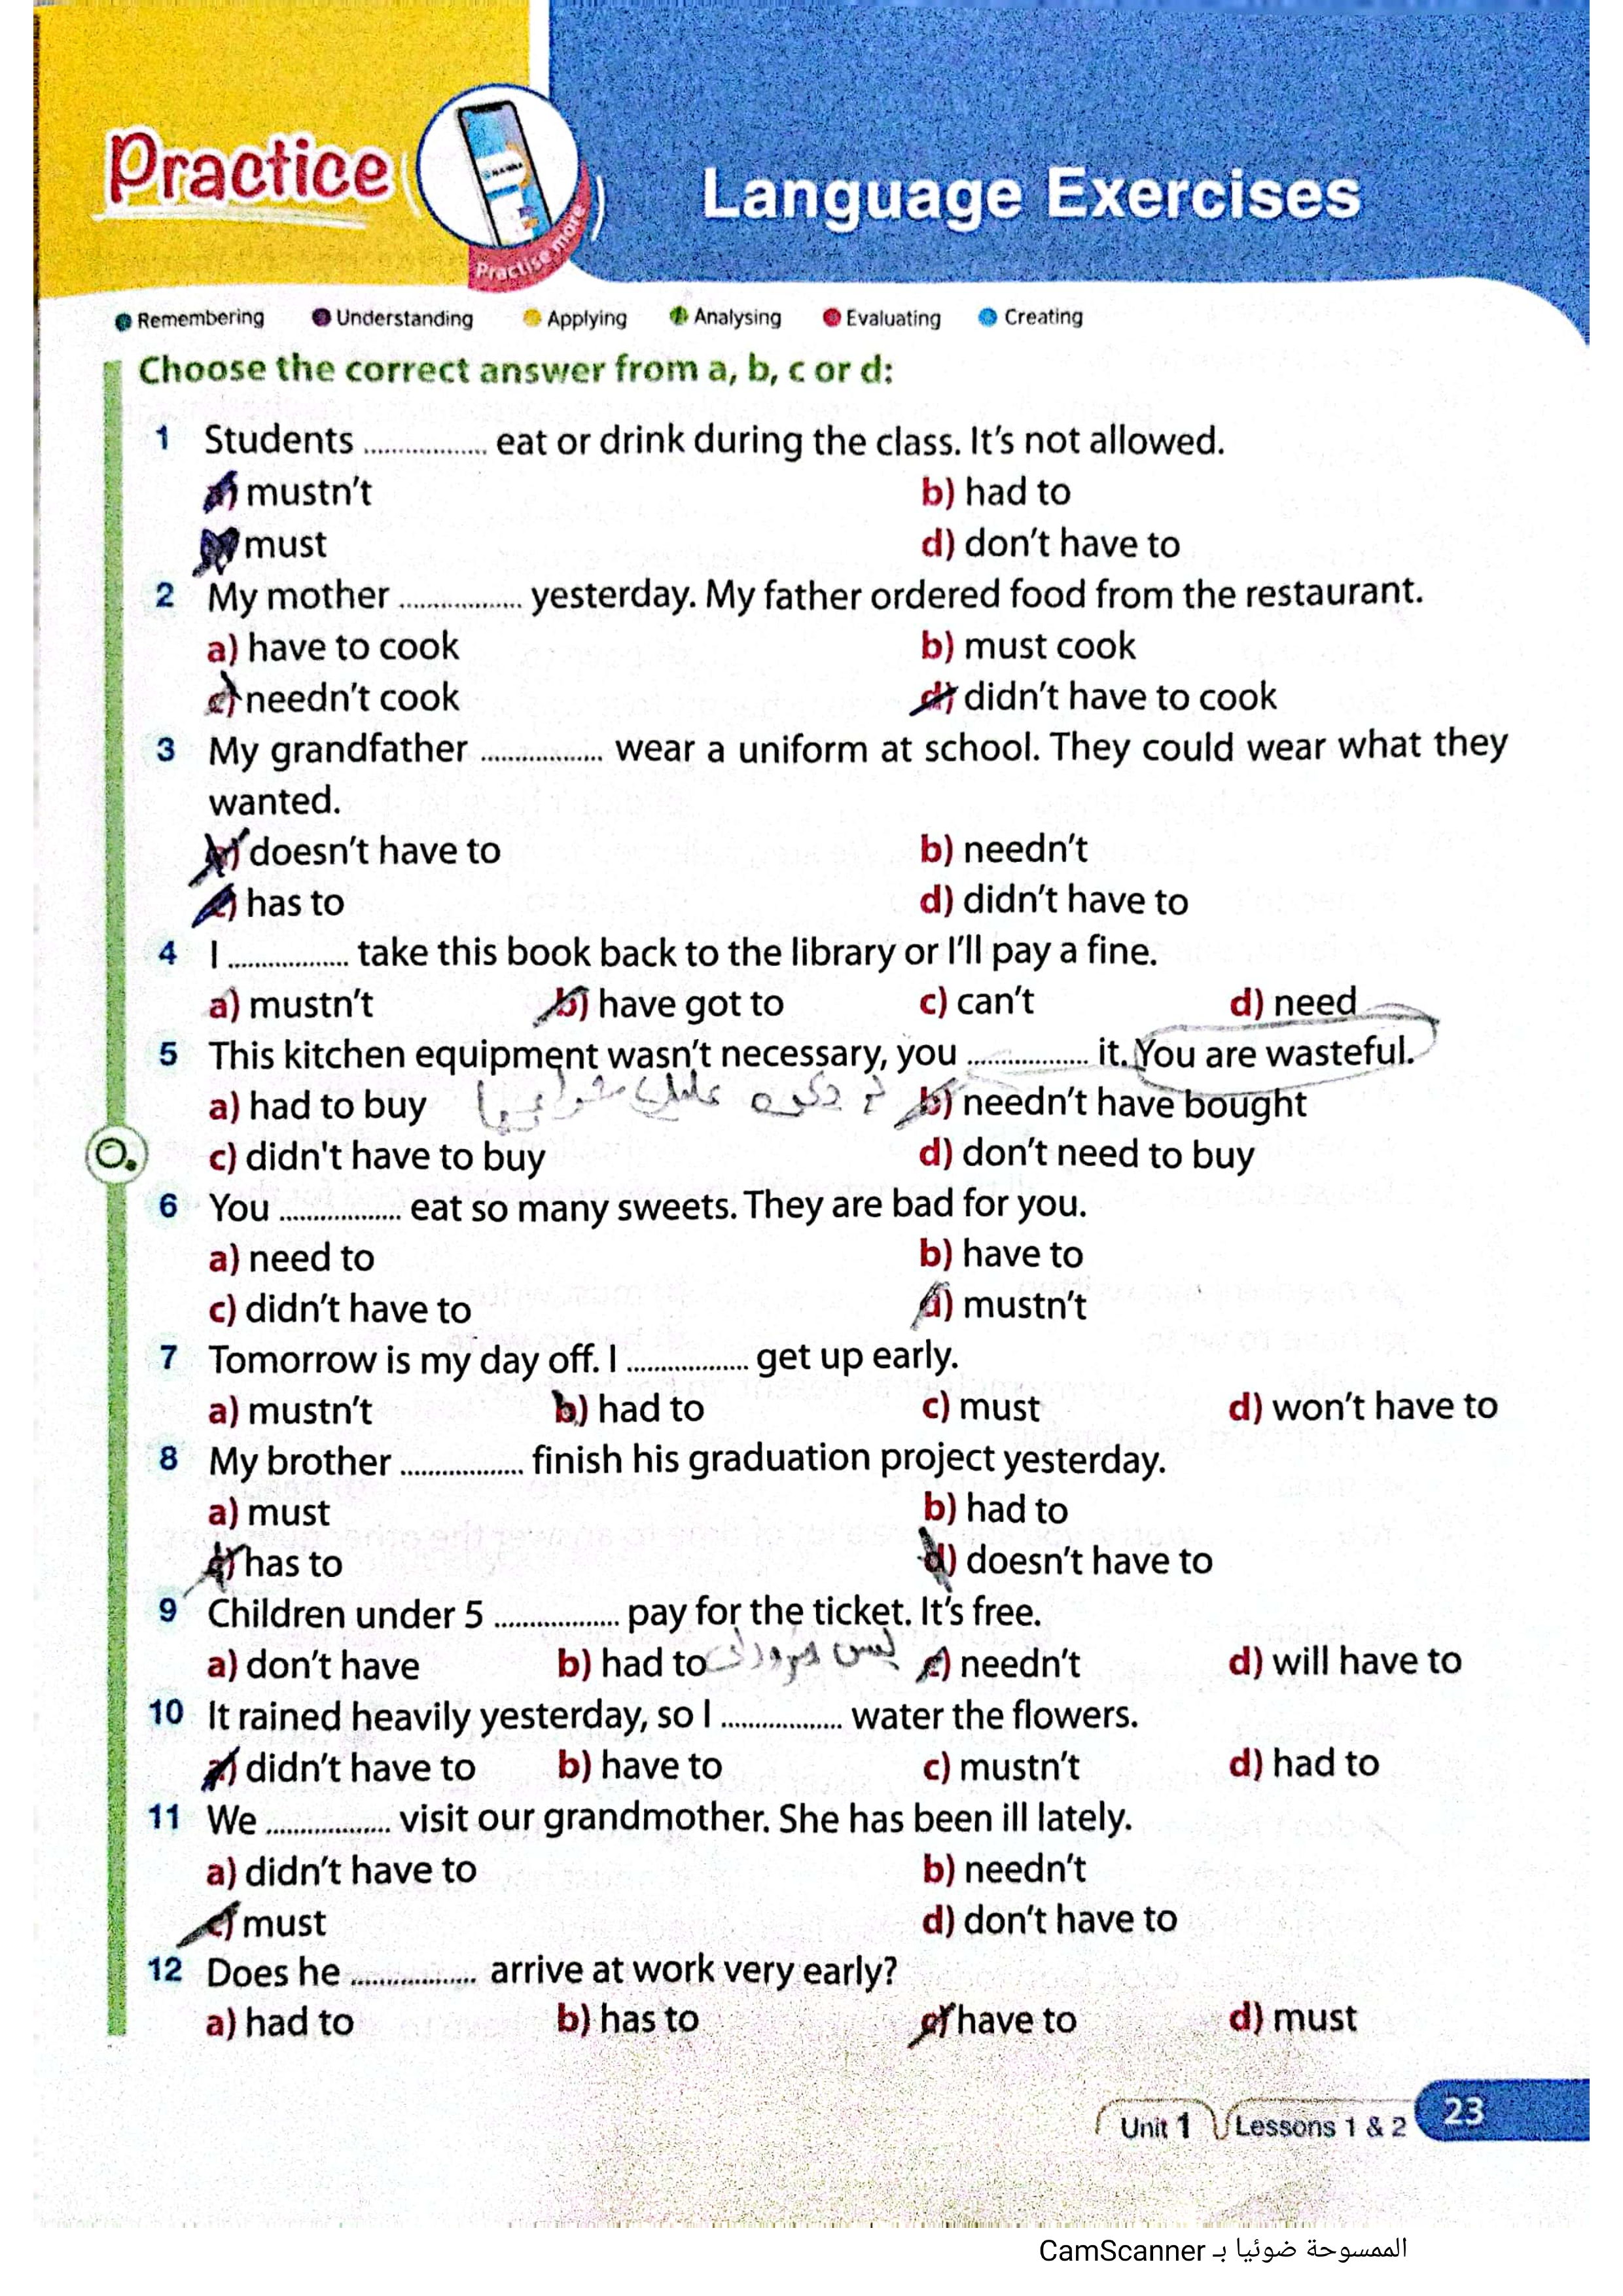 Practice
Practise more
Language Exercises
Remembering Understanding Applying Analysing Evaluating Creating
Choose the correct answer from a, b, c or d:
1 Students .................. eat or drink during the class. It's not allowed.
a) mustn't b) had to
must d) don't have to
2 My mother .................. yesterday. My father ordered food from the restaurant.
a) have to cook b) must cook
c) needn't cook d) didn't have to cook
3 My grandfather .................. wear a uniform at school. They could wear what they
wanted.
a) doesn't have to b) needn't
c) has to d) didn't have to
4 I .................. take this book back to the library or I'll pay a fine.
a) mustn't b) have got to c) can't d) need
5 This kitchen equipment wasn't necessary, you .................. it. You are wasteful.
a) had to buy b) needn't have bought
c) didn't have to buy d) don't need to buy
6 You .................. eat so many sweets. They are bad for you.
a) need to b) have to
c) didn't have to d) mustn't
7 Tomorrow is my day off. I .................. get up early.
a) mustn't b) had to c) must d) won't have to
8 My brother .................. finish his graduation project yesterday.
a) must b) had to
c) has to d) doesn't have to
9 Children under 5 .................. pay for the ticket. It's free.
ليس
a) don't have b) had to c) needn't d) will have to
10 It rained heavily yesterday, so I .................. water the flowers.
a) didn't have to b) have to c) mustn't d) had to
11 We .................. visit our grandmother. She has been ill lately.
a) didn't have to b) needn't
c) must d) don't have to
12 Does he .................. arrive at work very early?
a) had to b) has to c) have to d) must
Unit 1 Lessons 1 & 2 23
الممسوحة ضوئيا بـ CamScanner